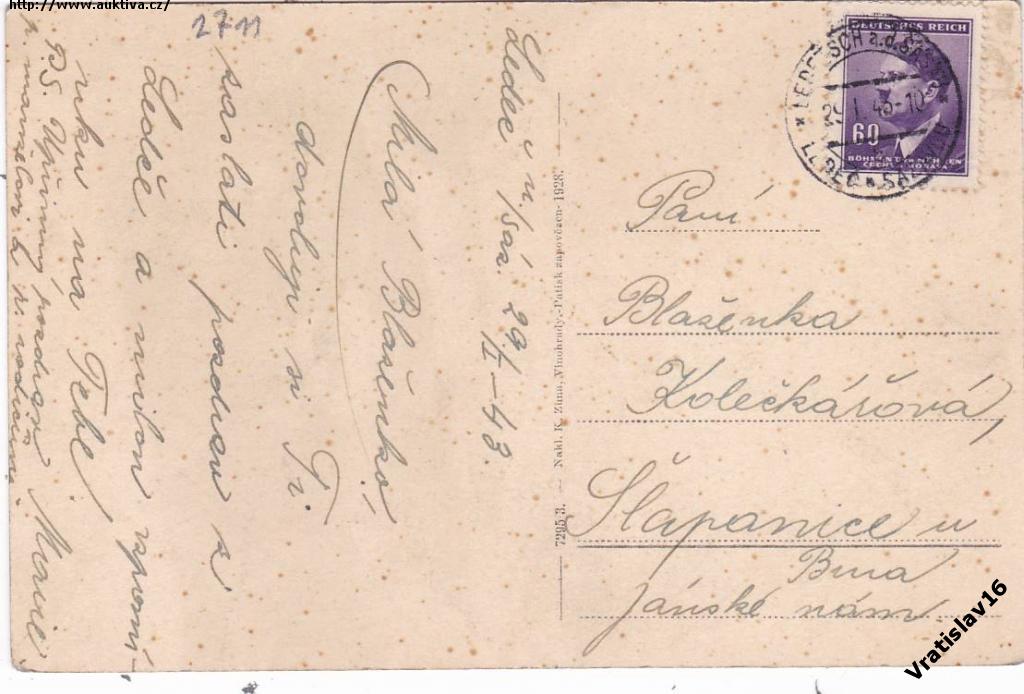 http://www.auktiva.cz/
2711
Ledeč n/Sáz. 29/I – 43.
Milá Blaženko!
dovoluji si Ti
zaslati pozdrav z
Ledče a milou vzpomí-
nku na Tebe
Marie
PS. Upřímný pozdrav
p. manželovi
7295 B. — Nakl. K. Zůna, Vinohrady.-Patisk zapovězen- 1928.
DEUTSCHES REICH
60
BÖHMEN UND MÄHREN
ČECHY A MORAVA
LEDETSCH a.d. SASAU
29. I. 43-10
LEDEČ n. SÁZAVOU
Paní
Blaženka
Kolečkářová,
Šlapanice u
Brna
Jánské nám.
Vratislav16